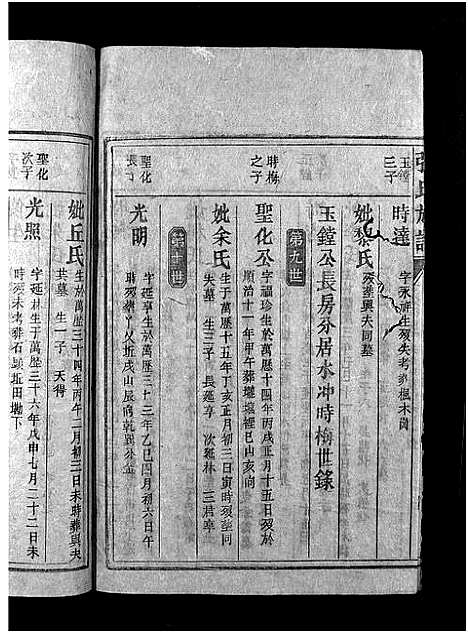 張氏族譜
玉鏜三子
時達
字永 生歿失考葬楓木崗
妣黎氏
歿葬與夫同墓
玉鏜公長房分居本冲時梅世錄
第九世
時梅之子
聖化公
字福珍生於萬歷十四年丙戌正月十五日歿於
順治十一年甲午葬壠城裡巳山亥向
妣余氏
生於萬歷十五年丁亥正月初三日寅時歿塋同
夫墓 生三子 長延享 次延林 三君卒
第十世
聖化長子
光明
字延享生於萬歷三十三年乙巳四月初六日午
時歿 坵戌山辰向乾巽分金
妣丘氏
生於萬歷三十四年丙午二月初三日未時葬與夫
共墓 生一子 天得
聖化次子
光照
字延林生于萬歷三十六年戊申七月二十二日未
時歿未考葬石 坵田塝下